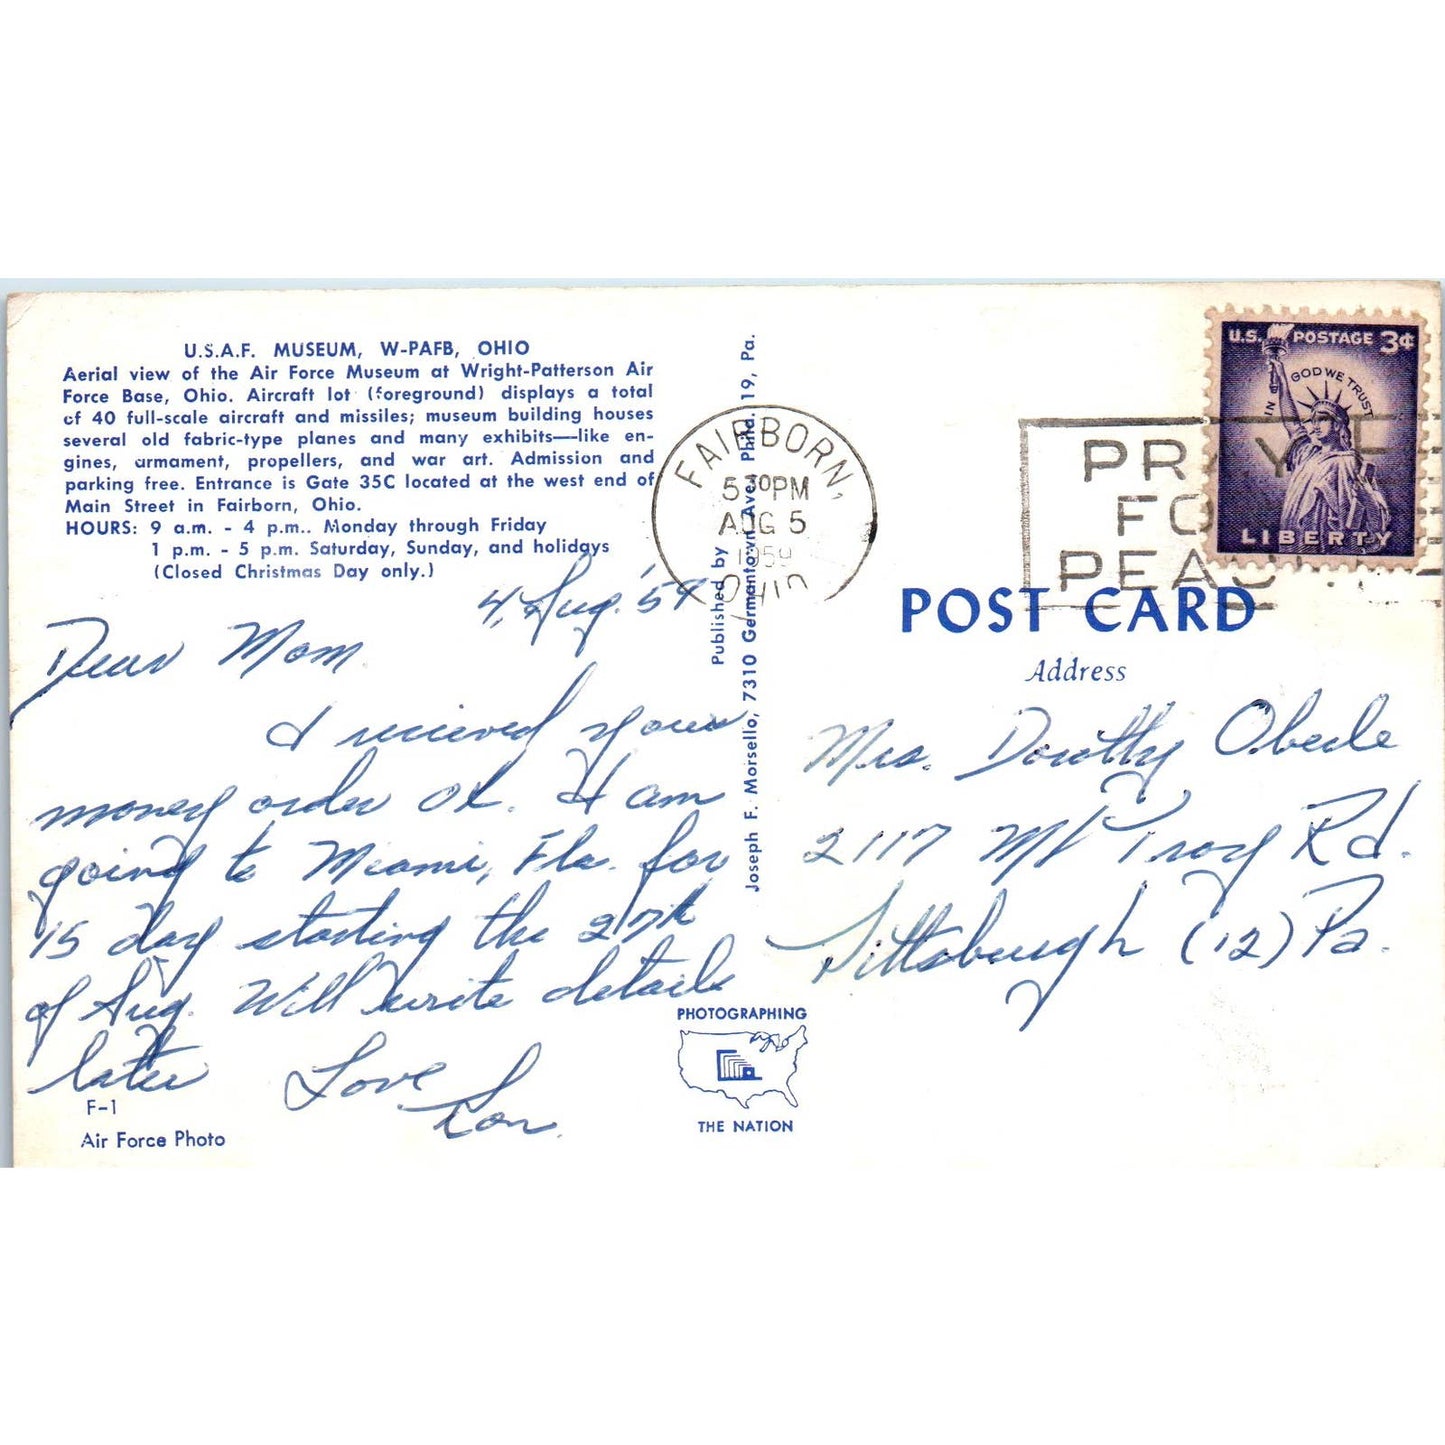 U.S.A.F. MUSEUM, W-PAFB, OHIO
Aerial view of the Air Force Museum at Wright-Patterson Air
Force Base, Ohio. Aircraft lot (foreground) displays a total
of 40 full-scale aircraft and missiles; museum building houses
several old fabric-type planes and many exhibits—like en-
gines, armament, propellers, and war art. Admission and
parking free. Entrance is Gate 35C located at the west end of
Main Street in Fairborn, Ohio.
HOURS: 9 a.m. - 4 p.m.. Monday through Friday
1 p.m. - 5 p.m. Saturday, Sunday, and holidays
(Closed Christmas Day only.)
4, Aug. '59
Dear Mom
I recieved your
money order ok. I am
going to Miami, Fla. for
15 day starting the 27th
of Aug. Will write details
later Love
Ron.
F-1
Air Force Photo
Published by
Joseph F. Morsello, 7310 Germantown Ave. Phila. 19, Pa.
PHOTOGRAPHING
THE NATION
FAIRBORN,
5 30 PM
AUG 5
1959
OHIO
PRAY
FOR
PEACE
U.S. POSTAGE 3¢
IN GOD WE TRUST
LIBERTY
POST CARD
Address
Mrs. Dorothy Oberle
2117 Mt Troy Rd.
Pittsburgh (12) Pa.